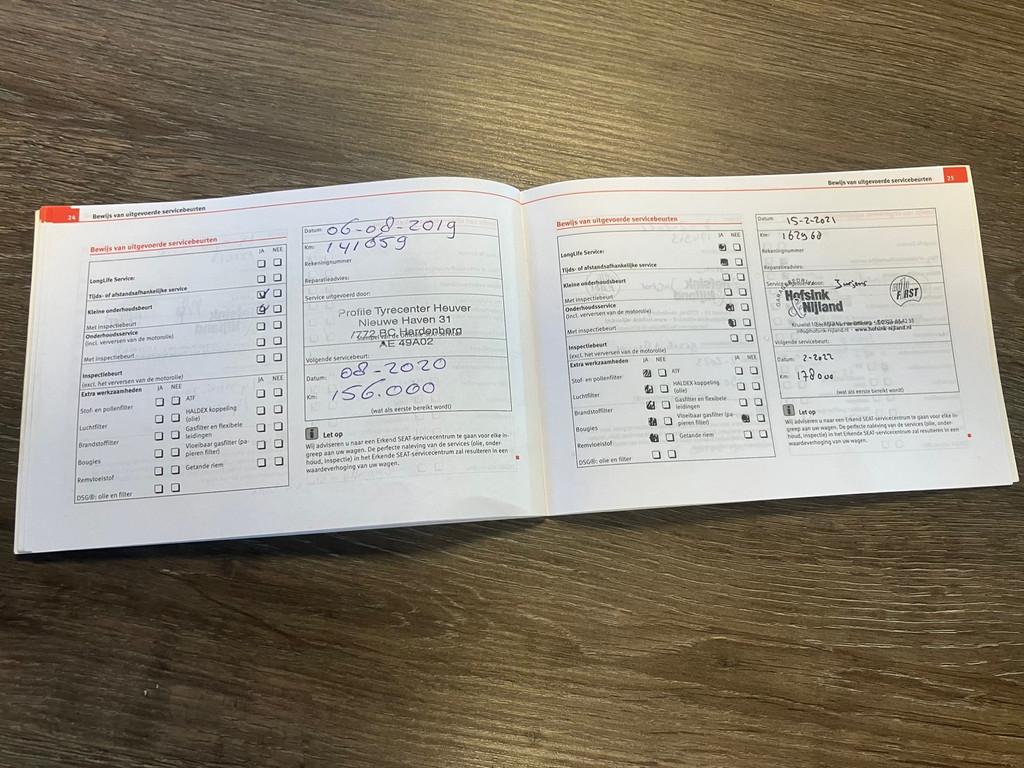 24 Bewijs van uitgevoerde servicebeurten
Bewijs van uitgevoerde servicebeurten
JA NEE
LongLife Service:
Tijds- of afstandsafhankelijke service
Kleine onderhoudsbeurt
Met inspectiebeurt
Onderhoudsservice
(incl. verversen van de motorolie)
Met inspectiebeurt
Inspectiebeurt
(excl. het verversen van de motorolie)
Extra werkzaamheden JA NEE JA NEE
Stof- en pollenfilter
Luchtfilter
Brandstoffilter
Bougies
Remvloeistof
DSG®: olie en filter
ATF
HALDEX koppeling
(olie)
Gasfilter en flexibele
leidingen
Vloeibaar gasfilter (pa-
pieren filter)
Getande riem
Datum: 06-08-2019
Km: 141059
Rekeningnummer
Reparatieadvies:
Service uitgevoerd door:
Profile Tyrecenter Heuver
Nieuwe Haven 31
7772 BC Hardenberg
AE 49A02
Volgende servicebeurt:
Datum: 08-2020
Km: 156.000
(wat als eerste bereikt wordt)
Let op
Wij adviseren u naar een Erkend SEAT-servicecentrum te gaan voor elke in-
greep aan uw wagen. De perfecte naleving van de services (olie, onder-
houd, inspectie) in het Erkende SEAT-servicecentrum zal resulteren in een
waardeverhoging van uw wagen.
Bewijs van uitgevoerde servicebeurten 25
Bewijs van uitgevoerde servicebeurten
JA NEE
LongLife Service:
Tijds- of afstandsafhankelijke service
Kleine onderhoudsbeurt
Met inspectiebeurt
Onderhoudsservice
(incl. verversen van de motorolie)
Met inspectiebeurt
Inspectiebeurt
(excl. het verversen van de motorolie)
Extra werkzaamheden JA NEE JA NEE
Stof- en pollenfilter
Luchtfilter
Brandstoffilter
Bougies
Remvloeistof
DSG®: olie en filter
ATF
HALDEX koppeling
(olie)
Gasfilter en flexibele
leidingen
Vloeibaar gasfilter (pa-
pieren filter)
Getande riem
Datum: 15-2-2021
Km: 162968
Rekeningnummer
Reparatieadvies:
Service door:
Hofsink
& Nijland
FIRST
www.hofsink-nijland.nl
Volgende servicebeurt:
Datum: 2-2022
Km: 178000
(wat als eerste bereikt wordt)
Let op
Wij adviseren u naar een Erkend SEAT-servicecentrum te gaan voor elke in-
greep aan uw wagen. De perfecte naleving van de services (olie, onder-
houd, inspectie) in het Erkende SEAT-servicecentrum zal resulteren in een
waardeverhoging van uw wagen.